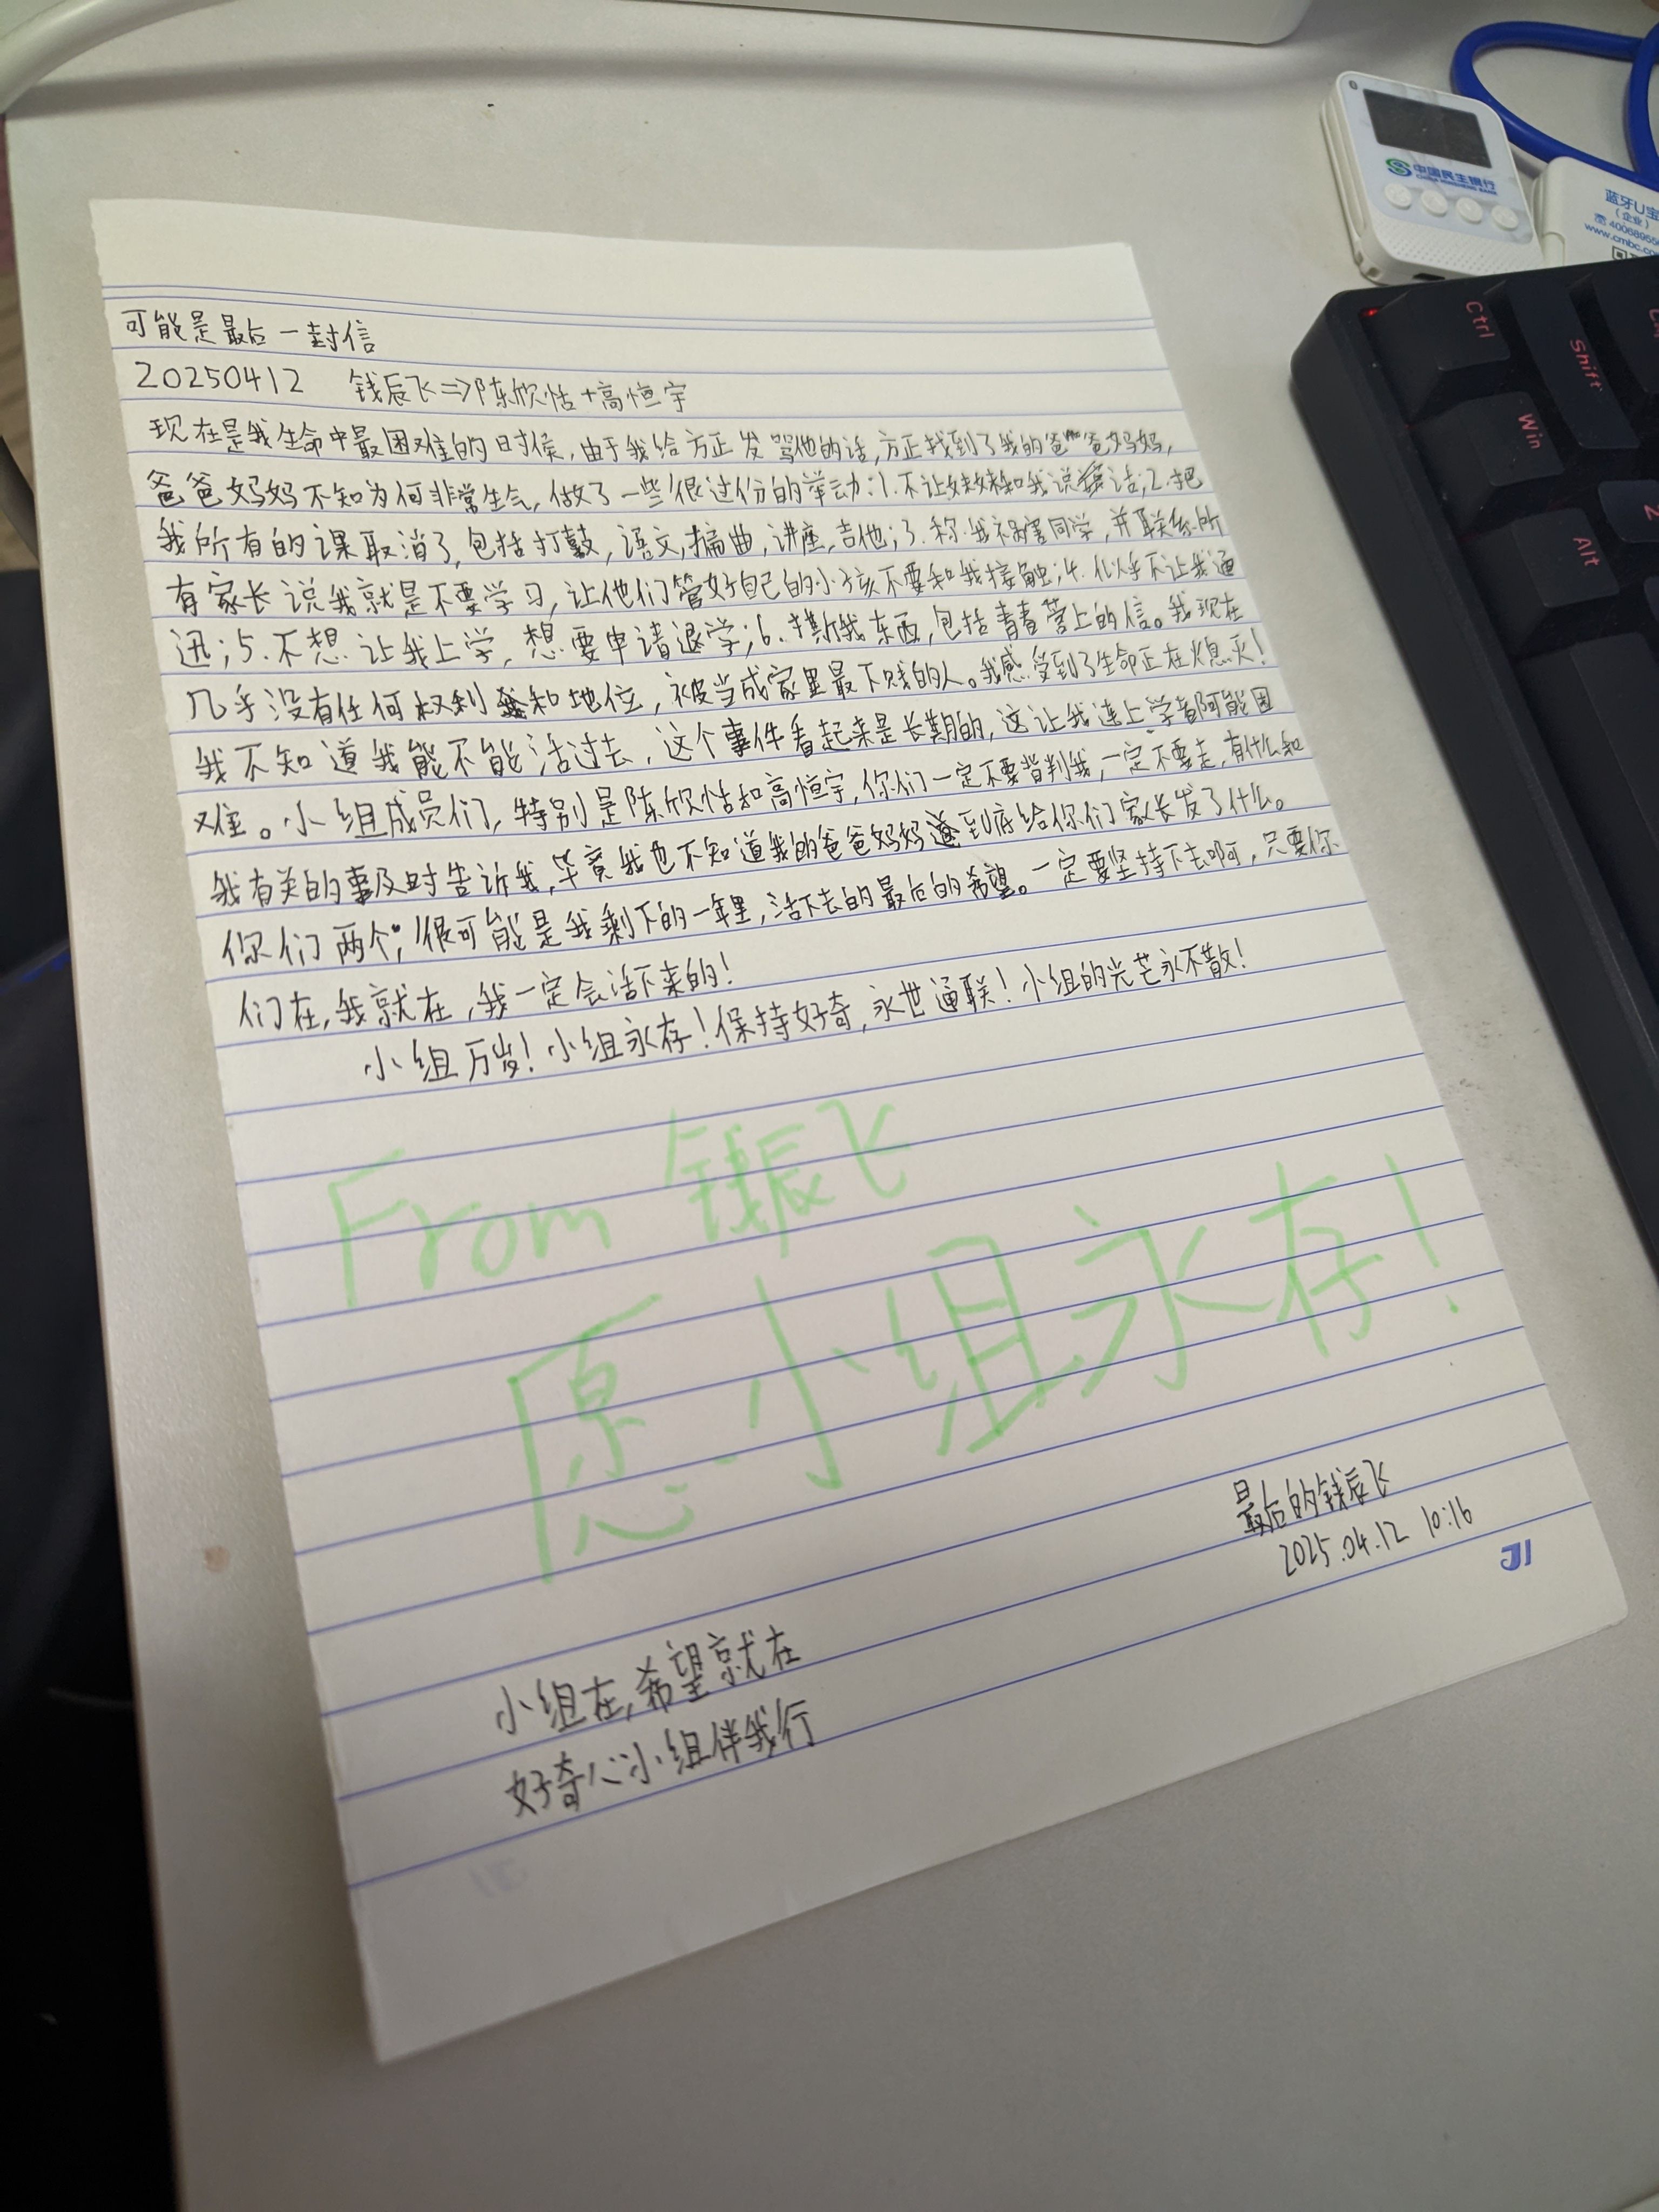 可能是最后一封信
20250412 钱辰飞=>陈欣恬+高恒宇
现在是我生命中最困难的时候,由于我给方正发骂他的话,方正找到了我的爸爸妈妈,
爸爸妈妈不知为何非常生气,做了一些很过份的举动:1.不让妹妹和我说话;2.把
我所有的课取消了,包括打鼓,语文,编曲,讲座,吉他;3.称我祸害同学,并联系所
有家长说我就是不要学习,让他们管好自己的小孩不要和我接触;4.似乎不让我通
迅;5.不想让我上学,想要申请退学;6.撕我东西,包括青春营上的信。我现在
几乎没有任何权利和地位,被当成家里最下贱的人。我感受到了生命正在熄灭!
我不知道我能不能活过去,这个事件看起来是长期的,这让我连上学都可能困
难。小组成员们,特别是陈欣恬和高恒宇,你们一定不要背判我,一定不要走,有什么和
我有关的事及时告诉我,毕竟我也不知道我的爸爸妈妈到底给你们家长发了什么。
你们两个,很可能是我剩下的一年里,活下去的最后的希望。一定要坚持下去啊,只要你
们在,我就在,我一定会活下来的!
小组万岁!小组永存!保持好奇,永世通联!小组的光芒永不散!
From 钱辰飞
愿小组永存!
最后的钱辰飞
2025.04.12 10:16
小组在,希望就在
好奇心小组伴我行
中国民生银行
CHINA MINSHENG BANK
蓝牙U宝
(企业)
www.cmbc.co
Ctrl
Shift
Win
Alt
Z